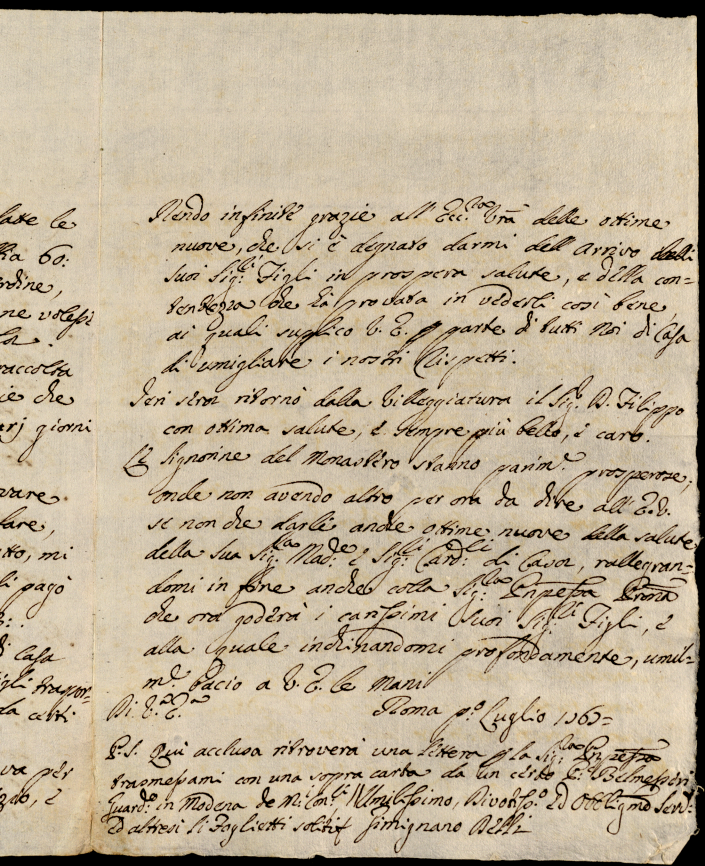 late le
60:
ordine,
ne volessi
raccolta
ie che
giorni
vare
lare,
mi
li pagò
di Casa
figli traspor-
da certi
va per
Rendo infinite grazie all' Ecc.za Vrã delle ottime
nuove, che si è degnato darmi dell' arrivo delli
suoi Sig.li Figli in prospera salute, e della con=
tentezza che hà provata in vederli così bene,
ai quali suplico V. E. p parte di tutti noi di Casa
di umigliare i nostri Rispetti.
Jeri sera ritornò dalla Villeggiatura il Sig.r D. Filippo
con ottima salute, e sempre più bello, e caro.
Le Signorine del Monastero stanno parim.e prosperose;
onde non avendo altro per ora da dire all' E. V.
se non che darli anche ottime nuove della salute
della Sua Sig.ra Mad.e e Sig.li Card.li di Casa, rallegran=
domi in fine anche colla Sig.ra Pnpessa Prona
che ora goderà i carissimi Suoi Sig.li Figli, e
alla quale inchinandomi profondamente, umil=
m.e bacio a V. E. le mani
Di V.a E.a Roma p.o Luglio 1767=
P. S. Qui acclusa ritroverà una lettera p la Sig.ra Pnpessa
trasmessami con una sopra carta da un certo
Guard.o in Modena de Umilissimo, Divotiss.o ed Obbligmo Serv.e
ed altresi li Foglietti soliti Gimignano Belli